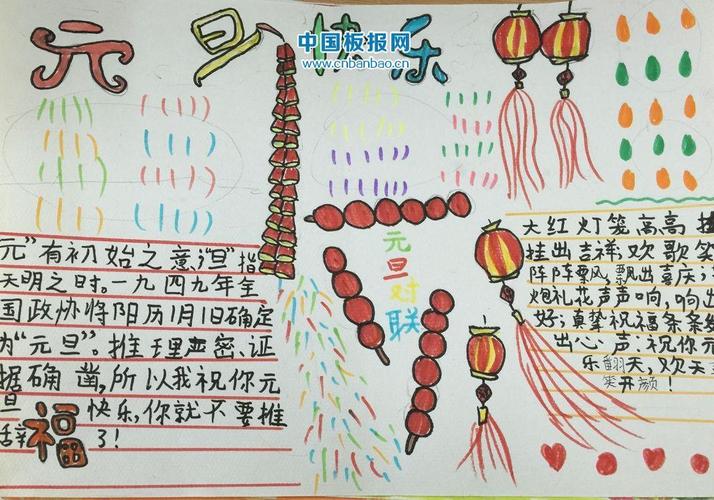 元旦快乐
中国板报网
www.cnbanbao.cn
元"有初始之意,"旦"指
天明之时。一九四九年全
国政协将阳历1月1日确定
为"元旦"。推理严密、证
据确凿,所以我祝你元
旦 快乐,你就不要推
辞 了!
福
元旦对联
大红灯笼高高挂
挂出吉祥,欢歌笑
阵阵飘,飘出喜庆;
炮礼花声声响,响出
好;真挚祝福条条
出心声:祝你元
乐翻天,欢天
笑开颜!